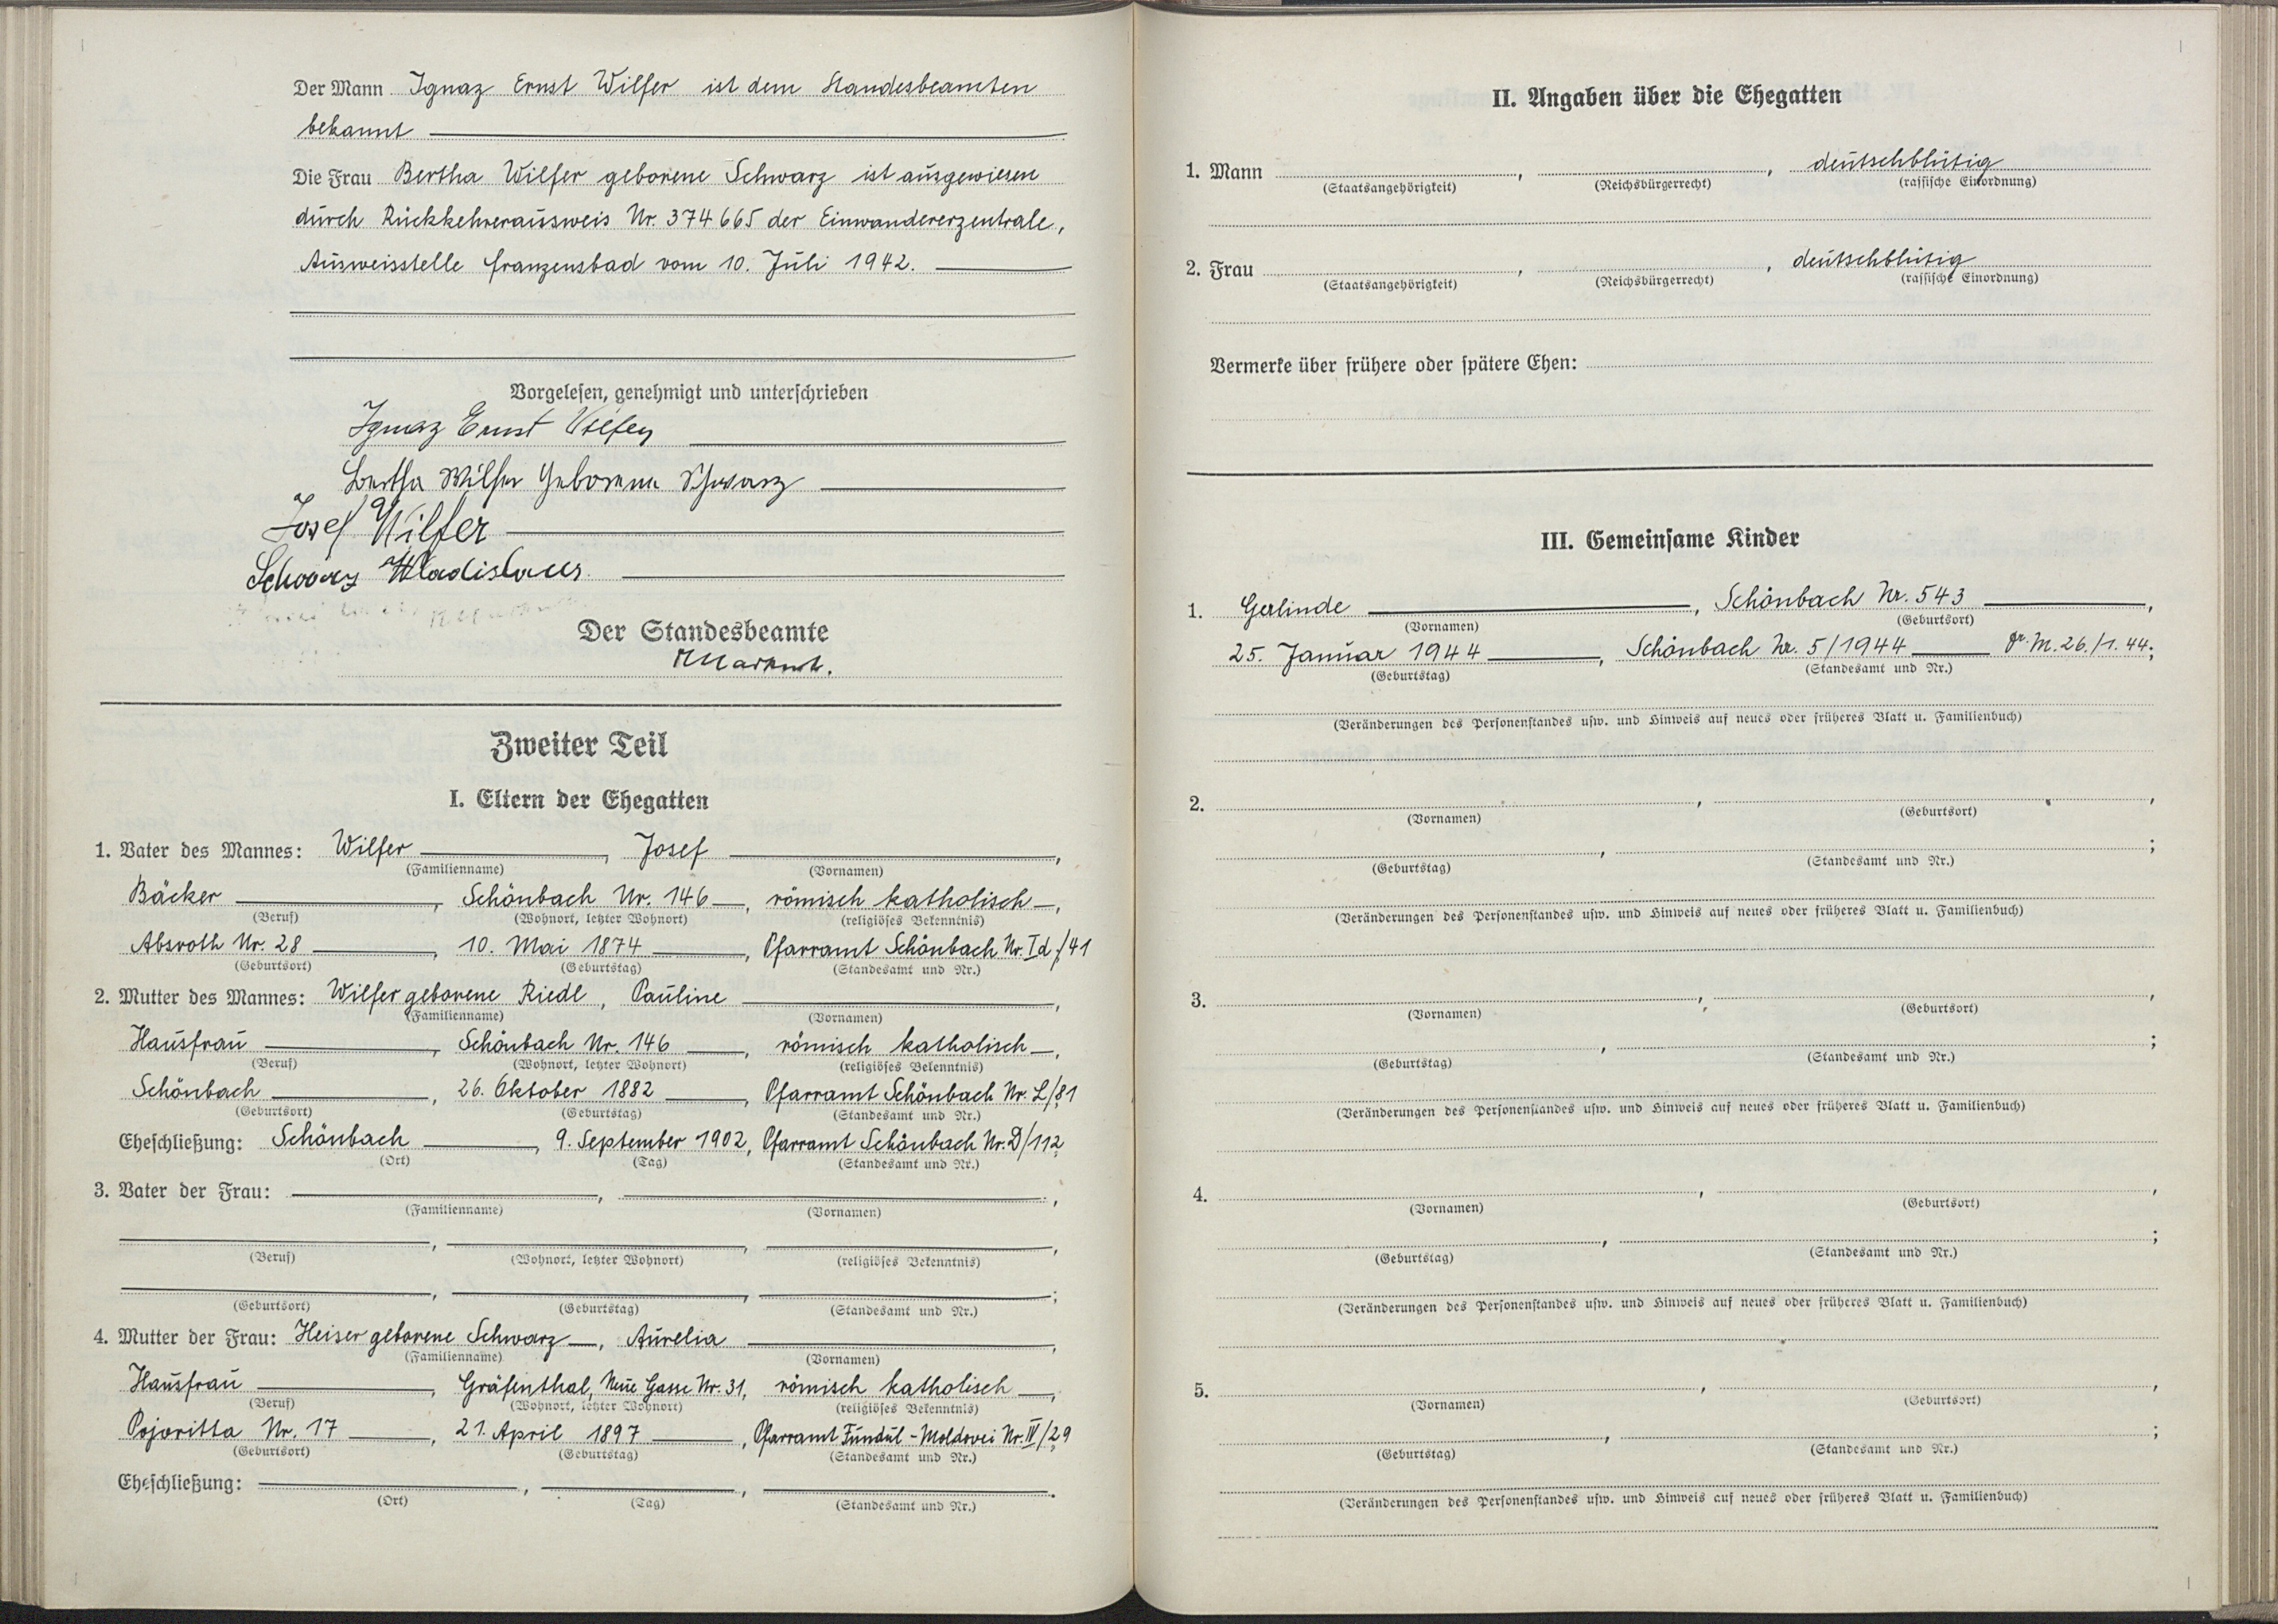 Der Mann Ignaz Ernst Wilfer ist dem Standesbeamten
bekannt
Die Frau Bertha Wilfer geborene Schwarz ist ausgewiesen
durch Rückkehrerausweis Nr. 374665 der Einwandererzentrale,
Ausweisstelle Franzensbad vom 10. Juli 1942.
Vorgelesen, genehmigt und unterschrieben
Ignaz Ernst Wilfer
Bertha Wilfer Geborene Schwarz
Josef Wilfer
Schwarz Wladislaus.
Der Standesbeamte
Zweiter Teil
I. Eltern der Ehegatten
1. Vater des Mannes: Wilfer, Josef,
(Familienname) (Vornamen)
Bäcker, Schönbach Nr. 146, römisch katholisch,
(Beruf) (Wohnort, letzter Wohnort) (religiöses Bekenntnis)
Absroth Nr. 28, 10. Mai 1874, Pfarramt Schönbach Nr. Id/41
(Geburtsort) (Geburtstag) (Standesamt und Nr.)
2. Mutter des Mannes: Wilfer geborene Riedl, Pauline,
(Familienname) (Vornamen)
Hausfrau, Schönbach Nr. 146, römisch katholisch,
(Beruf) (Wohnort, letzter Wohnort) (religiöses Bekenntnis)
Schönbach, 26. Oktober 1882, Pfarramt Schönbach Nr. L/81
(Geburtsort) (Geburtstag) (Standesamt und Nr.)
Eheschließung: Schönbach, 9. September 1902, Pfarramt Schönbach Nr. D/112
(Ort) (Tag) (Standesamt und Nr.)
3. Vater der Frau: , ,
(Familienname) (Vornamen)
, , ,
(Beruf) (Wohnort, letzter Wohnort) (religiöses Bekenntnis)
, , ;
(Geburtsort) (Geburtstag) (Standesamt und Nr.)
4. Mutter der Frau: Heiser geborene Schwarz, Aurelia,
(Familienname) (Vornamen)
Hausfrau, Gräfenthal, Neue Gasse Nr. 31, römisch katholisch,
(Beruf) (Wohnort, letzter Wohnort) (religiöses Bekenntnis)
Pojoritta Nr. 17, 21. April 1897, Pfarramt Fundul-Moldovei Nr. IV/29
(Geburtsort) (Geburtstag) (Standesamt und Nr.)
Eheschließung: , , .
(Ort) (Tag) (Standesamt und Nr.)
II. Angaben über die Ehegatten
1. Mann , , deutschblütig
(Staatsangehörigkeit) (Reichsbürgerrecht) (rassische Einordnung)
2. Frau , , deutschblütig
(Staatsangehörigkeit) (Reichsbürgerrecht) (rassische Einordnung)
Vermerke über frühere oder spätere Ehen:
III. Gemeinsame Kinder
1. Gerlinde, Schönbach Nr. 543,
(Vornamen) (Geburtsort)
25. Januar 1944, Schönbach Nr. 5/1944 M. 26./1. 44;
(Geburtstag) (Standesamt und Nr.)
(Veränderungen des Personenstandes usw. und Hinweis auf neues oder früheres Blatt u. Familienbuch)
2. , ,
(Vornamen) (Geburtsort)
, ;
(Geburtstag) (Standesamt und Nr.)
(Veränderungen des Personenstandes usw. und Hinweis auf neues oder früheres Blatt u. Familienbuch)
3. , ,
(Vornamen) (Geburtsort)
, ;
(Geburtstag) (Standesamt und Nr.)
(Veränderungen des Personenstandes usw. und Hinweis auf neues oder früheres Blatt u. Familienbuch)
4. , ,
(Vornamen) (Geburtsort)
, ;
(Geburtstag) (Standesamt und Nr.)
(Veränderungen des Personenstandes usw. und Hinweis auf neues oder früheres Blatt u. Familienbuch)
5. , ,
(Vornamen) (Geburtsort)
, ;
(Geburtstag) (Standesamt und Nr.)
(Veränderungen des Personenstandes usw. und Hinweis auf neues oder früheres Blatt u. Familienbuch)